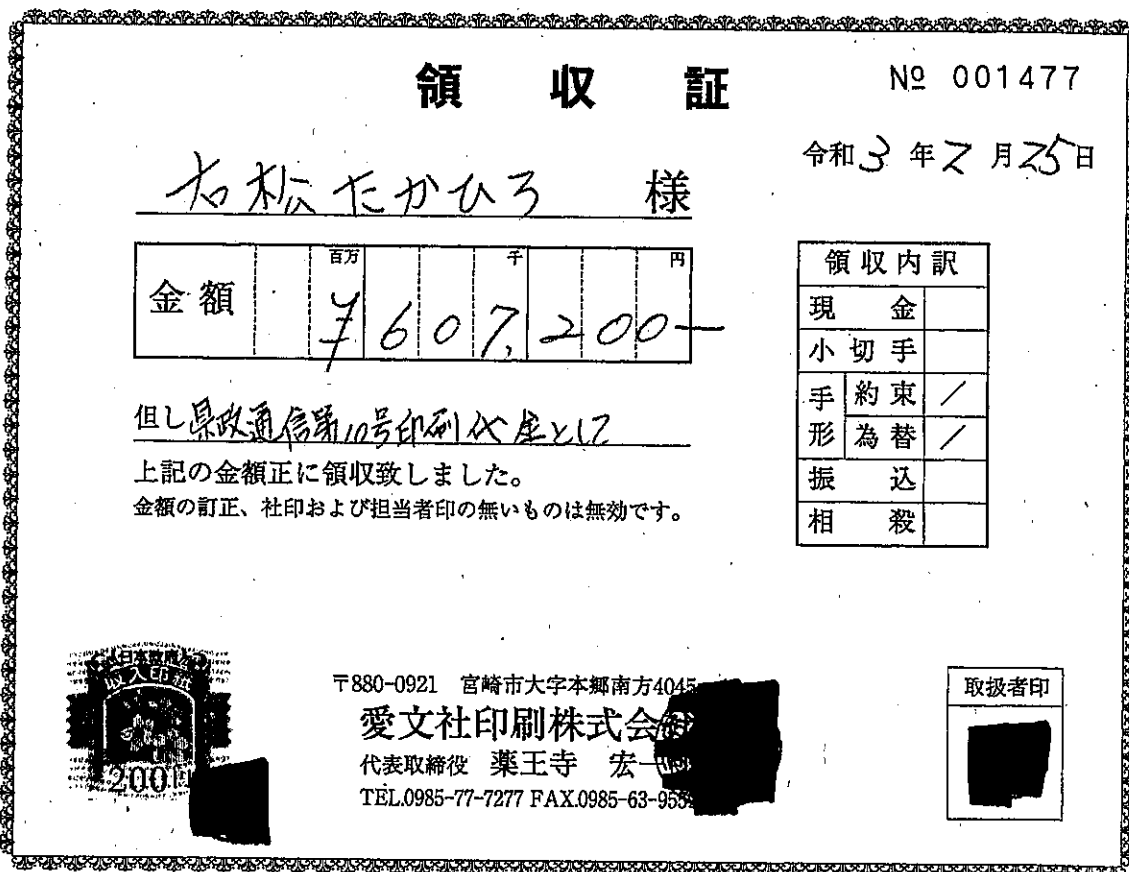 領収証
№ 001477
令和3年2月25日
右松たかひろ 様
金額 百万 千 円
¥607,200-
但し県政通信第10号印刷代金として
上記の金額正に領収致しました。
金額の訂正、社印および担当者印の無いものは無効です。
領収内訳
現金
小切手
手形 約束 /
為替 /
振込
相殺
日本政府
収入印紙
200円
〒880-0921 宮崎市大字本郷南方4045
愛文社印刷株式会社
代表取締役 薬王寺 宏一
TEL.0985-77-7277 FAX.0985-63-955
取扱者印